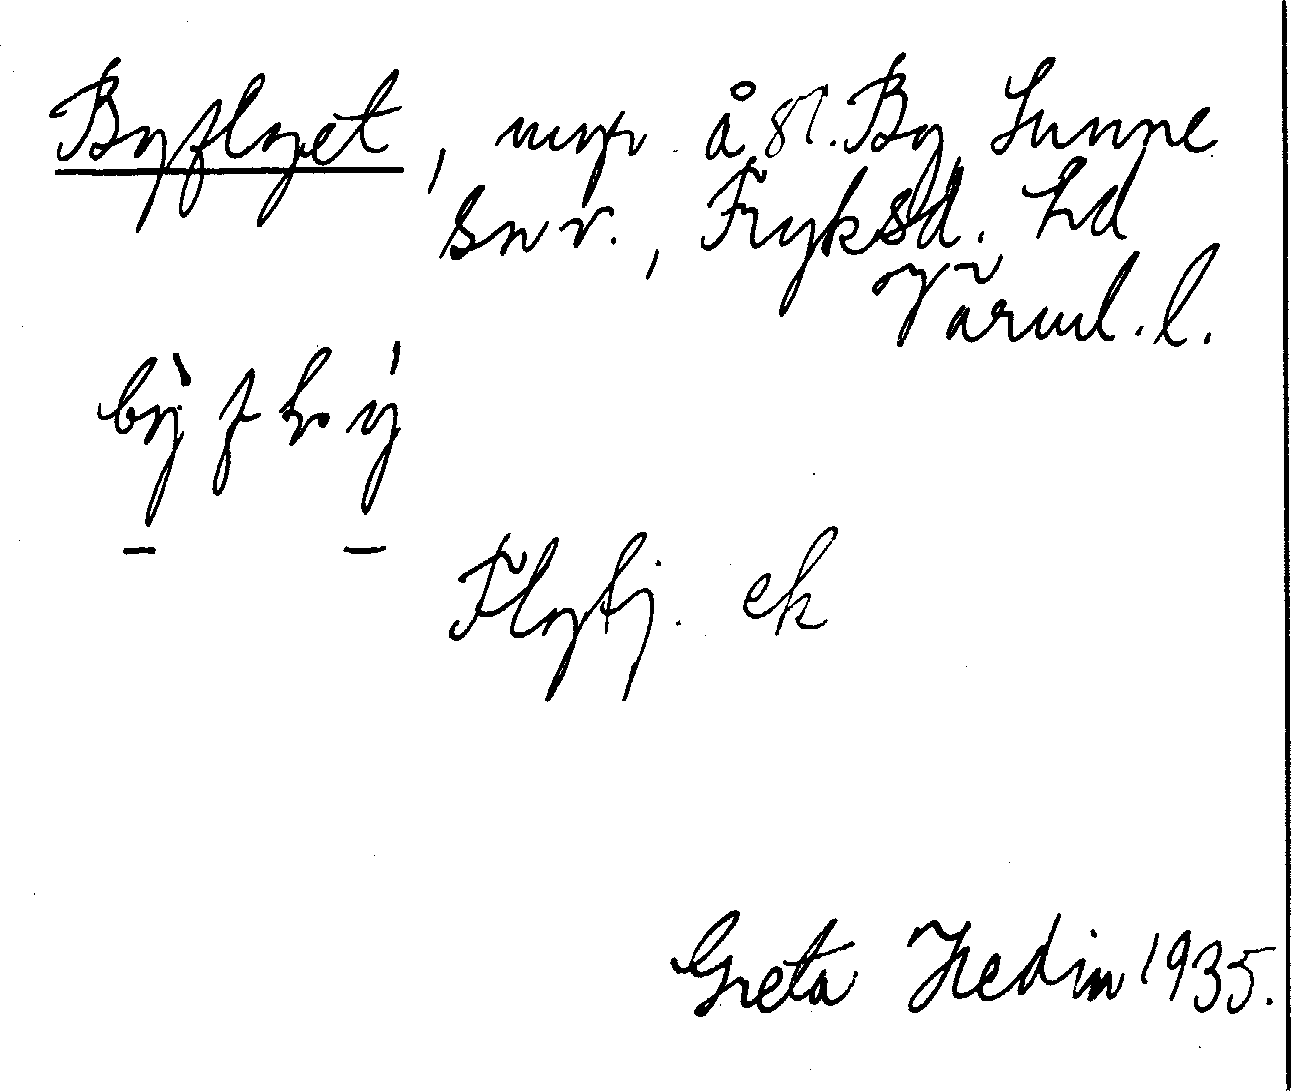 Byflyet, myr å sl. By, Sunne
snr., Fryksd. hd
Värml. l.
Flytj. ek
Greta Hedin 1935.